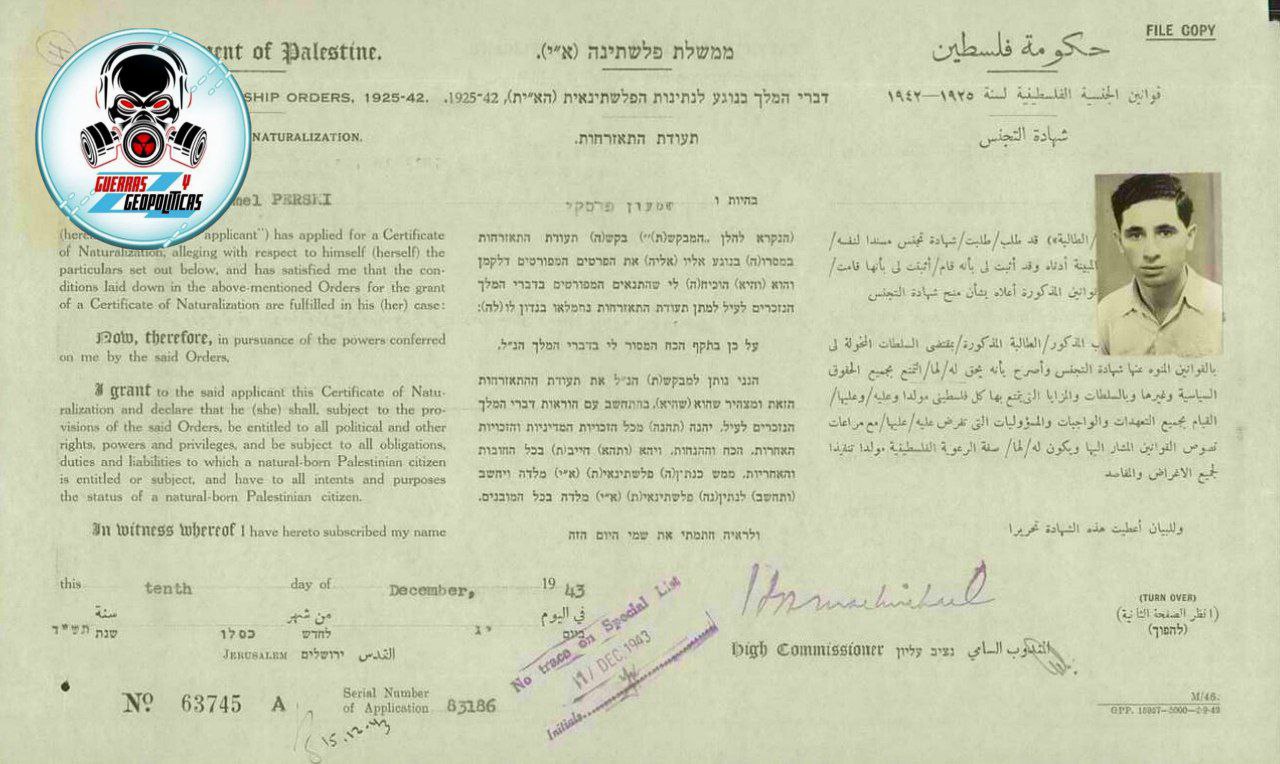 FILE COPY
ent of Palestine.
SHIP ORDERS, 1925-42.
NATURALIZATION.
GUERRAS Y
GEOPOLITICAS
mel PERSKI
applicant") has applied for a Certificate
of Naturalization, alleging with respect to himself (herself) the
particulars set out below, and has satisfied me that the con-
ditions laid down in the above-mentioned Orders for the grant
of a Certificate of Naturalization are fulfilled in his (her) case:
Now, therefore, in pursuance of the powers conferred
on me by the said Orders,
I grant to the said applicant this Certificate of Natu-
ralization and declare that he (she) shall, subject to the pro-
visions of the said Orders, be entitled to all political and other
rights, powers and privileges, and be subject to all obligations,
duties and liabilities to which a natural-born Palestinian citizen
is entitled or subject, and have to all intents and purposes
the status of a natural-born Palestinian citizen.
In witness whereof I have hereto subscribed my name
ממשלת פלשתינה (א״י).
דברי המלך בנוגע לנתינות הפלשתינאית (הא״ית), 1925-42.
תעודת התאזרחות.
בהיות ו שמעון פרסקי
(הנקרא להלן ,,המבקש(ת)") בקש(ה) תעודת התאזרחות
במסרו(ה) בנוגע אליו (אליה) את הפרטים המפורטים דלקמן
והוא (והיא) הוכיח(ה) לי שהתנאים המפורטים בדברי המלך
הנזכרים לעיל למתן תעודת התאזרחות נתמלאו בנדון לו (לה):
על כן בתקף הכח המסור לי בדברי המלך הנ״ל.
הנני נותן למבקש(ת) הנ״ל את תעודת ההתאזרחות
הזאת ומצהיר שהוא (שהיא), בהתחשב עם הוראות דברי המלך
הנזכרים לעיל, יהנה (תהנה) מכל הזכויות המדיניות והזכויות
האחרות, הכח וההנחות, ויהא (ותהא) חייב(ת) בכל החובות
והאחריות, ממש כנתין(ה) פלשתינאי(ת) (א״י) מלדה ויחשב
(ותחשב) לנתין(נה) פלשתינאי(ת) (א״י) מלדה בכל המובנים.
ולראיה חתמתי את שמי היום הזה
حكومة فلسطين
قوانين الجنسية الفلسطينية لسنة ١٩٢٥—١٩٤٢
شهادة التجنس
/الطالبة» قد طلب/طلبت/شهادة تجنس مسندا لنفسه/
المبينة أدناه وقد أثبت لى بأنه قام/أثبتت لى بأنها قامت/
قوانين المذكورة أعلاه بشأن منح شهادة التجنس
المذكور/الطالبة المذكورة/بمقتضى السلطات المخولة لى
بالقوانين المنوه عنها شهادة التجنس وأصرح بأنه يحق له/لها/التمتع بجميع الحقوق
السياسية وغيرها وبالسلطات والمزايا التى يتمتع بها كل فلسطينى مولدا وعليه/وعليها/
القيام بجميع التعهدات والواجبات والمسؤوليات التى تفرض عليه/عليها/مع مراعات
نصوص القوانين المشار اليها ويكون له/لها/ صفة الرعوية الفلسطينية مولدا تنفيذا
لجميع الاغراض والمقاصد
وللبيان أعطيت هذه الشهادة تحريرا
this tenth day of December, 19 43
سنة من شهر في اليوم
שנת תש״ד לחדש כסלו ביום יג
JERUSALEM ירושלים القدس
No trace on Special List
17 DEC 1943
Initials
High Commissioner נציב עליון المندوب السامي
(TURN OVER)
(انظر الصفحة الثانية)
(להפוך)
Nº 63745 A
Serial Number
of Application 83186
15.12.43
M/46.